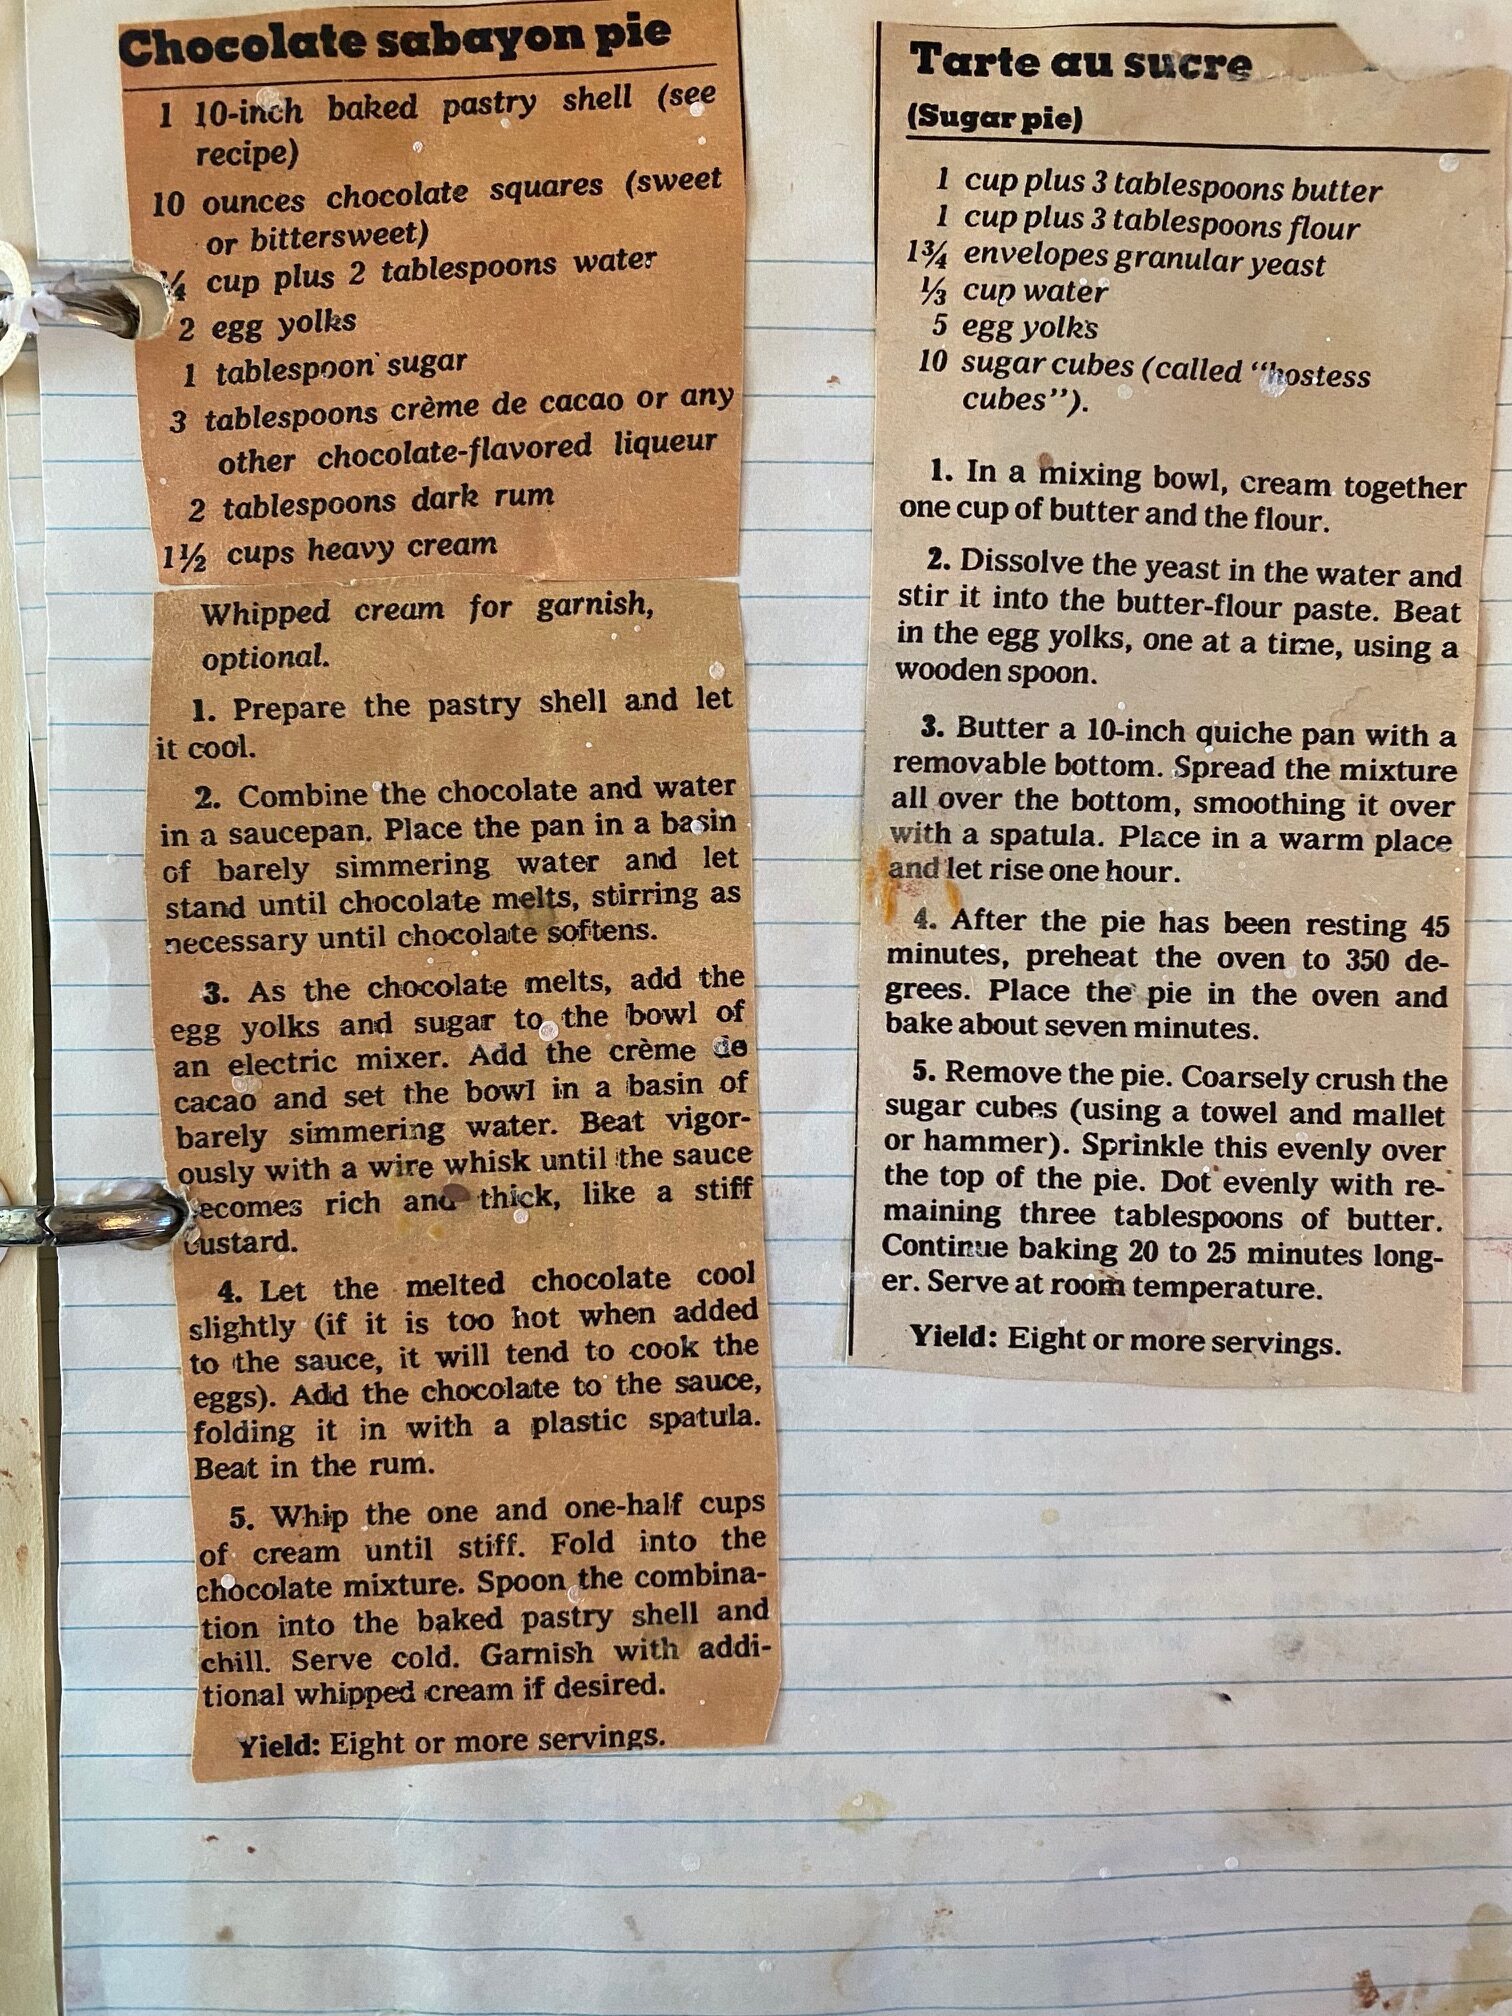 Chocolate sabayon pie
1 10-inch baked pastry shell (see
recipe)
10 ounces chocolate squares (sweet
or bittersweet)
cup plus 2 tablespoons water
2 egg yolks
1 tablespoon sugar
3 tablespoons crème de cacao or any
other chocolate-flavored liqueur
2 tablespoons dark rum
1½ cups heavy cream
Whipped cream for garnish,
optional.
1. Prepare the pastry shell and let
it cool.
2. Combine the chocolate and water
in a saucepan. Place the pan in a basin
of barely simmering water and let
stand until chocolate melts, stirring as
necessary until chocolate softens.
3. As the chocolate melts, add the
egg yolks and sugar to the bowl of
an electric mixer. Add the crème de
cacao and set the bowl in a basin of
barely simmering water. Beat vigor-
ously with a wire whisk until the sauce
ecomes rich and thick, like a stiff
custard.
4. Let the melted chocolate cool
slightly (if it is too hot when added
to the sauce, it will tend to cook the
eggs). Add the chocolate to the sauce,
folding it in with a plastic spatula.
Beat in the rum.
5. Whip the one and one-half cups
of cream until stiff. Fold into the
chocolate mixture. Spoon the combina-
tion into the baked pastry shell and
chill. Serve cold. Garnish with addi-
tional whipped cream if desired.
Yield: Eight or more servings.
Tarte au sucre
(Sugar pie)
1 cup plus 3 tablespoons butter
1 cup plus 3 tablespoons flour
1¾ envelopes granular yeast
⅓ cup water
5 egg yolks
10 sugar cubes (called "hostess
cubes").
1. In a mixing bowl, cream together
one cup of butter and the flour.
2. Dissolve the yeast in the water and
stir it into the butter-flour paste. Beat
in the egg yolks, one at a time, using a
wooden spoon.
3. Butter a 10-inch quiche pan with a
removable bottom. Spread the mixture
all over the bottom, smoothing it over
with a spatula. Place in a warm place
and let rise one hour.
4. After the pie has been resting 45
minutes, preheat the oven to 350 de-
grees. Place the pie in the oven and
bake about seven minutes.
5. Remove the pie. Coarsely crush the
sugar cubes (using a towel and mallet
or hammer). Sprinkle this evenly over
the top of the pie. Dot evenly with re-
maining three tablespoons of butter.
Continue baking 20 to 25 minutes long-
er. Serve at room temperature.
Yield: Eight or more servings.